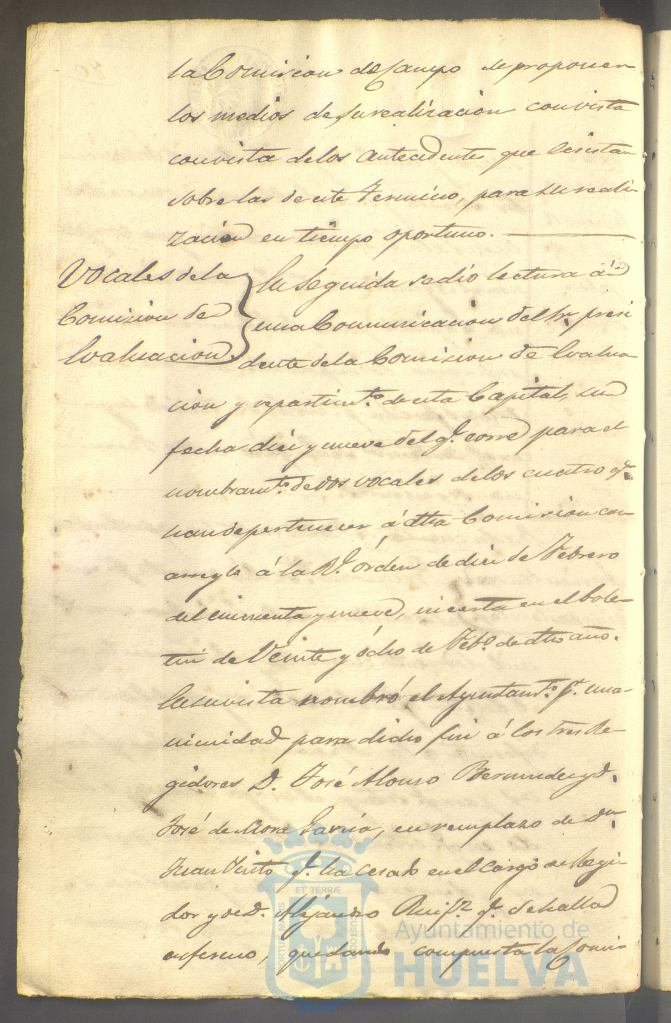 la Comision de Campo de proponer
los medios de su realizacion con vista
con vista de los antecedentes que ecsistan
sobre las de este Termino, para su reali
zacion en tiempo oportuno.
Vocales de la
Comision de
Evaluacion
En seguida se dio lectura á
una Comunicacion del Sr. presi
dente de la Comision de Evalua
cion y repartimto. de esta Capital, su
fecha diez y nueve del qe. corre para el
nombramto. de dos vocales de los cuatro qe.
han de pertenecer á dha Comision con
arreglo á la Rl. órden de diez de Febrero
del cincuenta y nueve, inserta en el bole-
tin de Veinte y ócho de Febo. de dho año.
En su vista nombró el Ayuntamto. pr. una-
nimidad para dicho fin á los tres Re-
gidores D. José Alonso Bermudez y D.
José de Mora Garcia, en remplazo de Dn.
Juan qe. ha cesado en el cargo de Regi-
dor y de D. Alejandro qe. se halla
enfermo, quedando compuesta la Comis
ET TERRÆ
Ayuntamiento de
HUELVA